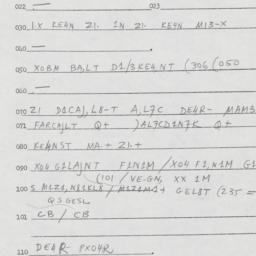 022 — 023
030 1.X KE4N Z1. 1N Z1. KE4N M13-X
040 —
050 XOBM BA,LT D1/3KE4NT (306 (050
060 —
070 Z1 D1CAJ,L8-T A,L7C DE4R- MAM3
071 FARCAJLT Q+ )AL7CD1N7K Q+
080 KE4NST MA.+ Z1.+
090 X04 G1LAJNT F1N1M /X04 F1,N1M G1
(101 / VE-GN, XX 1M
100 S M1Z1, / M1Z1M-1+ GEL8T (235 =
QSGESL
101 CB / CB
110 DE4R- PX04R